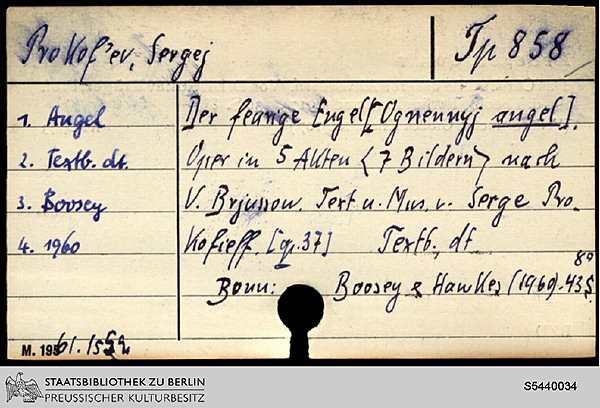 Prokof'ev, Sergej
Tp 858
1. Angel
2. Textb. dt.
3. Boosey
4. 1960
Der feurige Engel [Ognennyj angel].
Oper in 5 Akten <7 Bildern> nach
V. Brjusow. Text u. Mus. v. Serge Pro-
kofieff. [op. 37] Textb., dt.
Bonn: Boosey & Hawkes (1960). 43 S.
8°
M. 195
STAATSBIBLIOTHEK ZU BERLIN
PREUSSISCHER KULTURBESITZ
S5440034